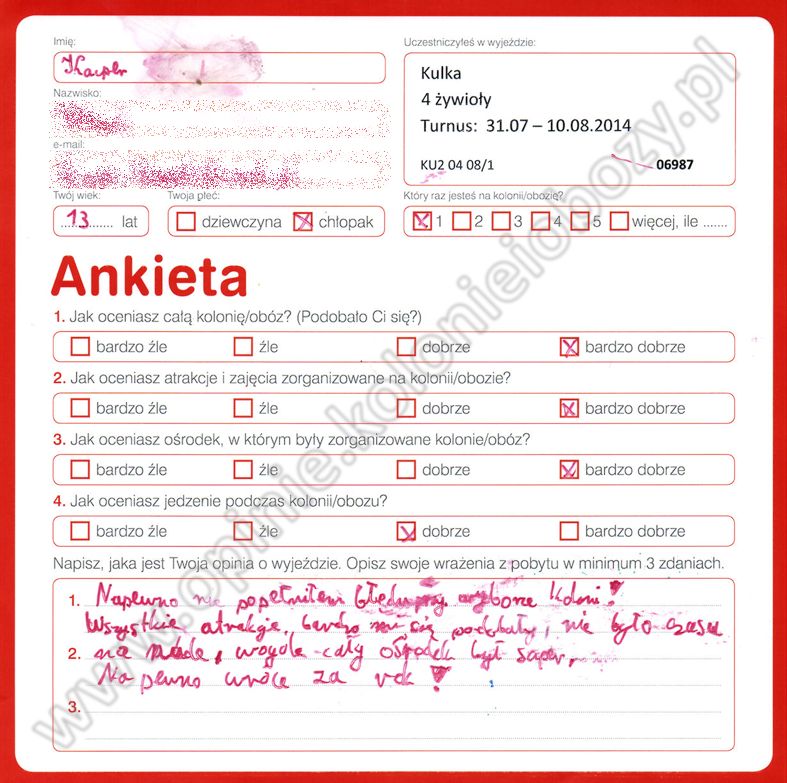 Imię:
Kacper
Uczestniczyłeś w wyjeździe:
Kulka
4 żywioły
Turnus: 31.07 – 10.08.2014
KU2 04 08/1
06987
Nazwisko:
e-mail:
Twój wiek:
13 lat
Twoja płeć:
dziewczyna chłopak
Który raz jesteś na kolonii/obozie?
1 2 3 4 5 więcej, ile .......
Ankieta
1. Jak oceniasz całą kolonię/obóz? (Podobało Ci się?)
bardzo źle źle dobrze bardzo dobrze
2. Jak oceniasz atrakcje i zajęcia zorganizowane na kolonii/obozie?
bardzo źle źle dobrze bardzo dobrze
3. Jak oceniasz ośrodek, w którym były zorganizowane kolonie/obóz?
bardzo źle źle dobrze bardzo dobrze
4. Jak oceniasz jedzenie podczas kolonii/obozu?
bardzo źle źle dobrze bardzo dobrze
Napisz, jaka jest Twoja opinia o wyjeździe. Opisz swoje wrażenia z pobytu w minimum 3 zdaniach.
1. Napewno nie popełniłem błędu przy wyborze koloni!
Wszystkie atrakcje bardzo mi się podobały, nie było czasu
2. na nude, wogóle cały ośrodek był super,
Na pewno wróce za rok!
3.
www.opinie.kolonieiobozy.pl